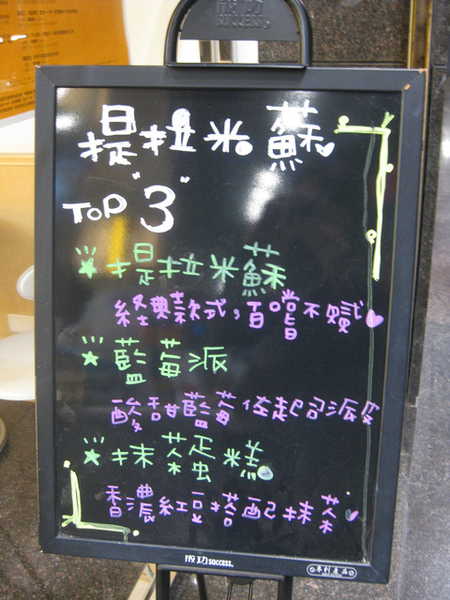 成功
SUCCESS®
提拉米蘇
TOP "3"
提拉米蘇
經典款式,百嚐不膩
藍莓派
酸甜藍莓佐起司派皮
抹茶蛋糕
香濃紅豆搭配抹茶
成功 SUCCESS.
專利產品